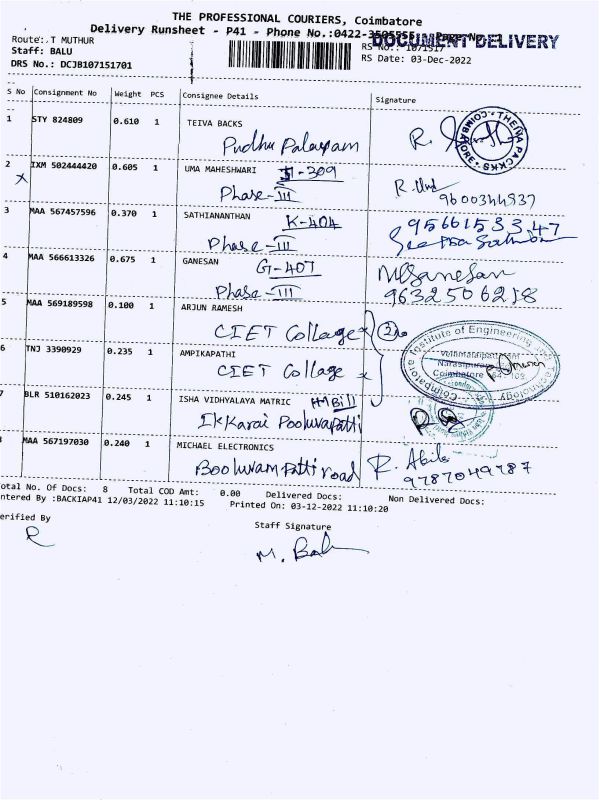 THE PROFESSIONAL COURIERS, Coimbatore
Delivery Runsheet - P41 - Phone No.:0422-
DOCUMENT DELIVERY
Route: T MUTHUR
RS No.: 107151
Staff: BALU
RS Date: 03-Dec-2022
DRS No.: DCJB107151701
S No Consignment No Weight PCS Consignee Details Signature
1 STY 824809 0.610 1 TEIVA BACKS
Pudhu Palayam
R.
THEIVA PACKKS COIMBATORE
2 IXM 502444420 0.605 1 UMA MAHESHWARI -309
x Phase-III
R. Uma
9600344937
3 MAA 567457596 0.370 1 SATHIANANTHAN K-404
Phase-III
9566153347
4 MAA 566613326 0.675 1 GANESAN G-407
Phase-III
Ganesan
9632506218
5 MAA 569189598 0.100 1 ARJUN RAMESH
CIET Collage x 2
6 TNJ 3390929 0.235 1 AMPIKAPATHI
CIET Collage x
Coimbatore Institute of Engineering and Technology
Vellimalaipattinam
Narasipuram
Coimbatore - 641 109
7 BLR 510162023 0.245 1 ISHA VIDHYALAYA MATRIC HM Bill
Ikkarai Pooluvapatti
8 MAA 567197030 0.240 1 MICHAEL ELECTRONICS
Booluvampatti road
R. Abila
9787049787
otal No. Of Docs: 8 Total COD Amt: 0.00 Delivered Docs: Non Delivered Docs:
ntered By :BACKIAP41 12/03/2022 11:10:15 Printed On: 03-12-2022 11:10:20
erified By
Staff Signature
R
M. Balu